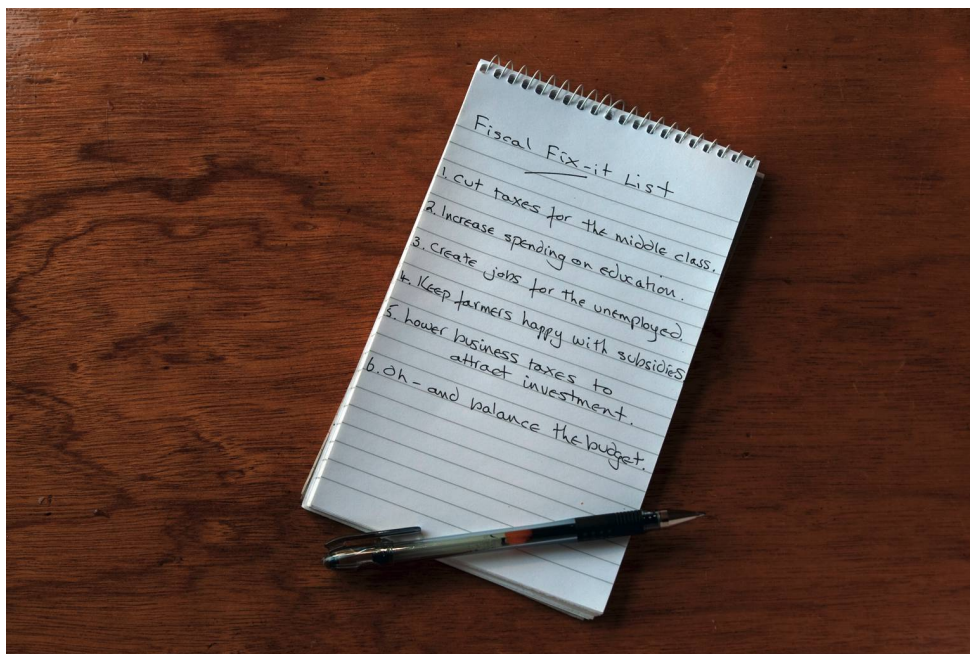 Fiscal Fix-it List
1. cut taxes for the middle class.
2. Increase spending on education.
3. create jobs for the unemployed.
4. Keep farmers happy with subsidies.
5. Lower business taxes to
attract investment.
6. Oh - and balance the budget.